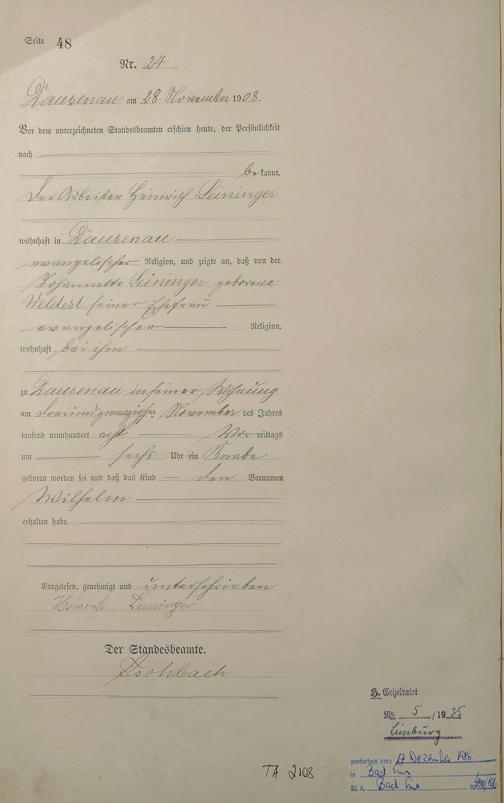 Seite 48
Nr. 24
Dausenau am 28. November 1908.
Vor dem unterzeichneten Standesbeamten erschien heute, der Persönlichkeit
nach
be kannt,
der Arbeiter Heinrich Leininger
wohnhaft in Dausenau
evangelischer Religion, und zeigte an, daß von der
Johannette Leininger geborene
Weldert seiner Ehefrau
evangelischer Religion,
wohnhaft bei ihm
zu Dausenau in seiner Wohnung
am dreiundzwanzigsten November des Jahres
tausend neunhundert acht Vor mittags
um sechs Uhr ein Knabe
geboren worden sei und daß das Kind den Vornamen
Wilhelm
erhalten habe.
Vorgelesen, genehmigt und unterschrieben
Heinrich Leininger
Der Standesbeamte.
Nr. 5 / 1935
Limburg
gestorben am: 17 Dezember 1986
in Bad Ems
St. A. Bad Ems
TA 2108